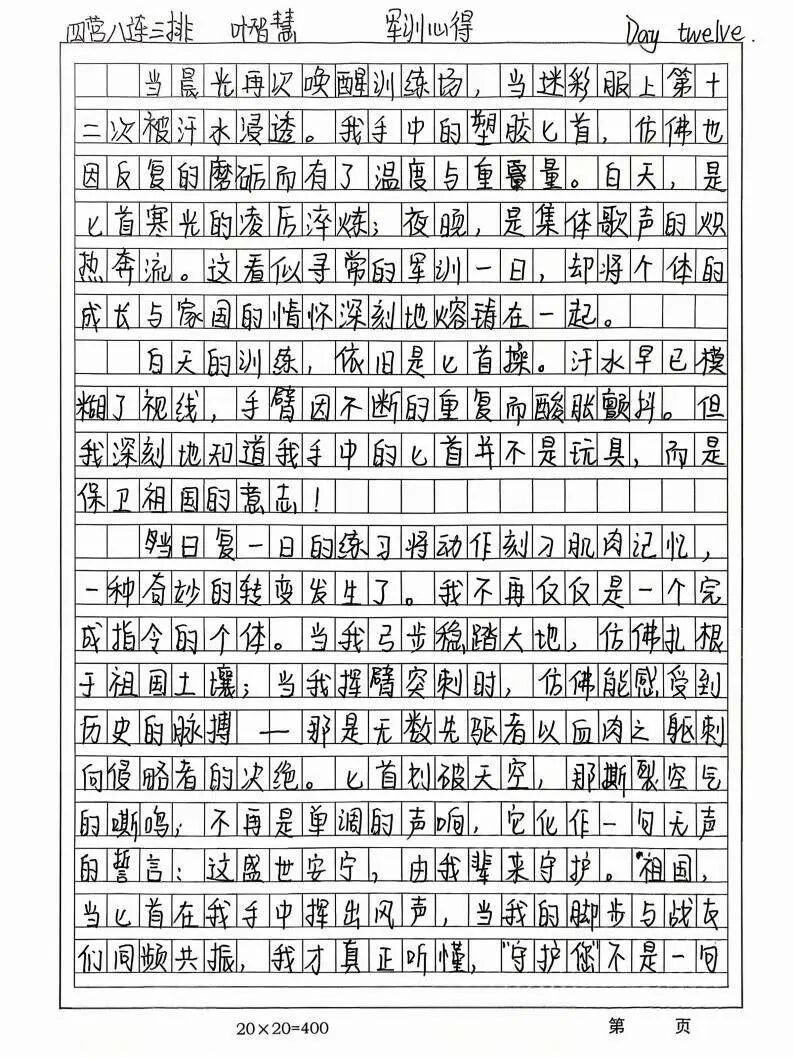 四营八连三排 叶智慧 军训心得 Day twelve.
当晨光再次唤醒训练场，当迷彩服上第十
二次被汗水浸透。我手中的塑胶匕首，仿佛也
因反复的磨砺而有了温度与重量。白天，是
匕首寒光的凌厉淬炼；夜晚，是集体歌声的炽
热奔流。这看似寻常的军训一日，却将个体的
成长与家国的情怀深刻地熔铸在一起。
白天的训练，依旧是匕首操。汗水早已模
糊了视线，手臂因不断的重复而酸胀颤抖。但
我深刻地知道我手中的匕首并不是玩具，而是
保卫祖国的意志！
当日复一日的练习将动作刻刀肌肉记忆，
一种奇妙的转变发生了。我不再仅仅是一个完
成指令的个体。当我弓步稳踏大地，仿佛扎根
于祖国土壤；当我挥臂突刺时，仿佛能感受到
历史的脉搏—那是无数先驱者以血肉之躯刺
向侵略者的决绝。匕首划破天空，那撕裂空气
的嘶鸣；不再是单调的声响，它化作一句无声
的誓言：这盛世安宁，由我辈来守护。"祖国，
当匕首在我手中挥出风声，当我的脚步与战友
们同频共振，我才真正听懂，"守护您"不是一句
20×20=400 第 页